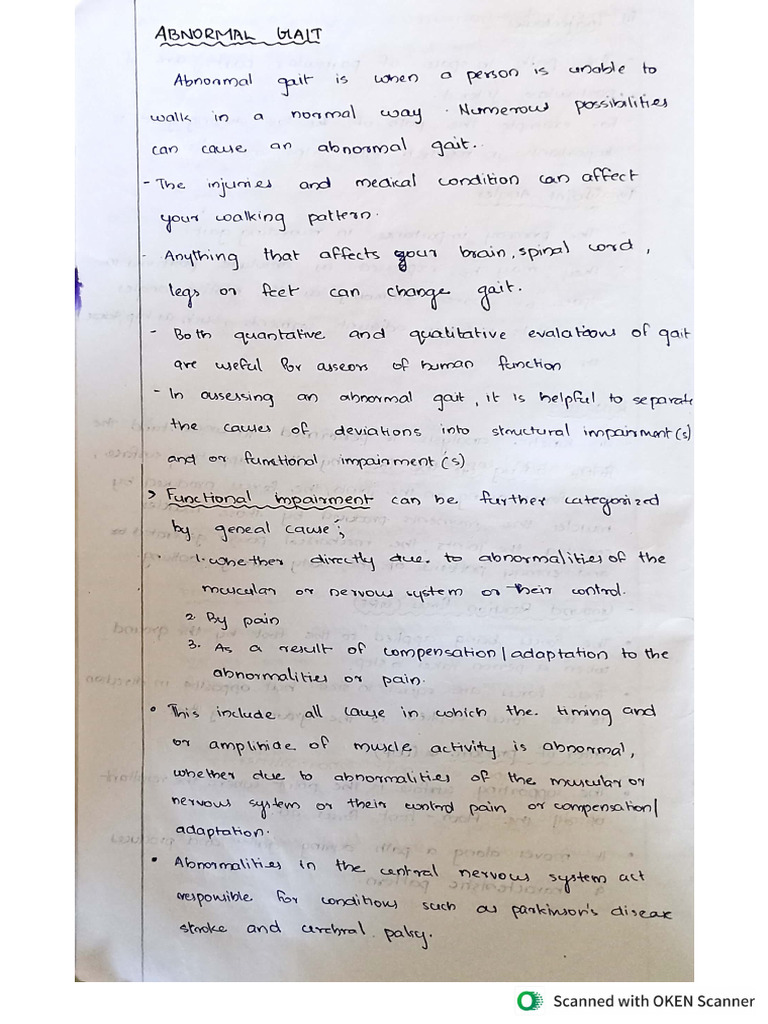 ABNORMAL GAIT
Abnormal gait is when a person is unable to
walk in a normal way. Numerous possibilities
can cause an abnormal gait.
- The injuries and medical condition can affect
your walking pattern.
- Anything that affects your brain, spinal cord,
legs or feet can change gait.
- Both quantative and qualitative evalations of gait
are useful for asseors of human function
- In assessing an abnormal gait, it is helpful to separate
the causes of deviations into structural impairment(s)
and or functional impairment(s)
> Functional impairment can be further categorized
by geneal cause;
1. Whether directly due to abnormalities of the
muscular or nervous system or their control.
2. By pain
3. As a result of compensation/adaptation to the
abnormalities or pain.
• This include all cause in which the timing and
or amplinide of muscle activity is abnormal,
whether due to abnormalities of the muscular or
nervous system or their control pain or compensation/
adaptation.
• Abnormalities in the central nervous system act
responsible for conditions such as parkinson's diseas
stroke and cerebral palsy.
Scanned with OKEN Scanner